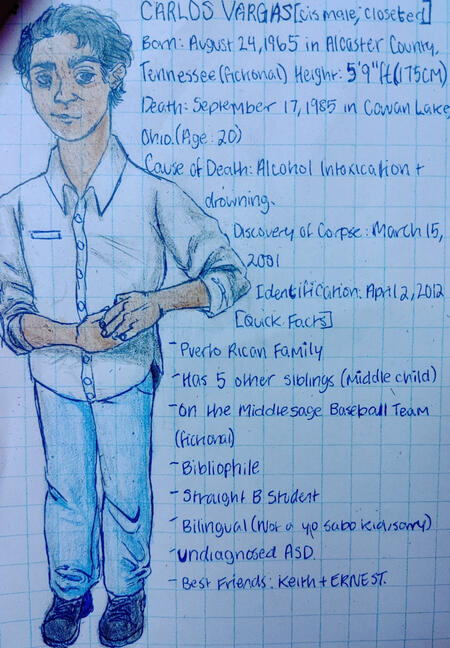 CARLOS VARGAS[cis male, closeted]
Born: August 24, 1965 in Alcaster County,
Tennessee (fictional) Height: 5'9"ft (175CM)
Death: September 17, 1985 in Cowan Lake,
Ohio. (Age: 20)
Cause of Death: Alcohol Intoxication +
drowning.
Discovery of Corpse: March 15,
2001
Identification: April 2, 2012
[Quick Facts]
- Puerto Rican Family
- Has 5 other siblings (Middle child)
- On the Middlesage Baseball Team
(fictional)
- Bibliophile
- Straight B Student
- Bilingual (Not a yo sabo kid, sorry)
- undiagnosed ASD.
- Best Friends: Keith + ERNEST.